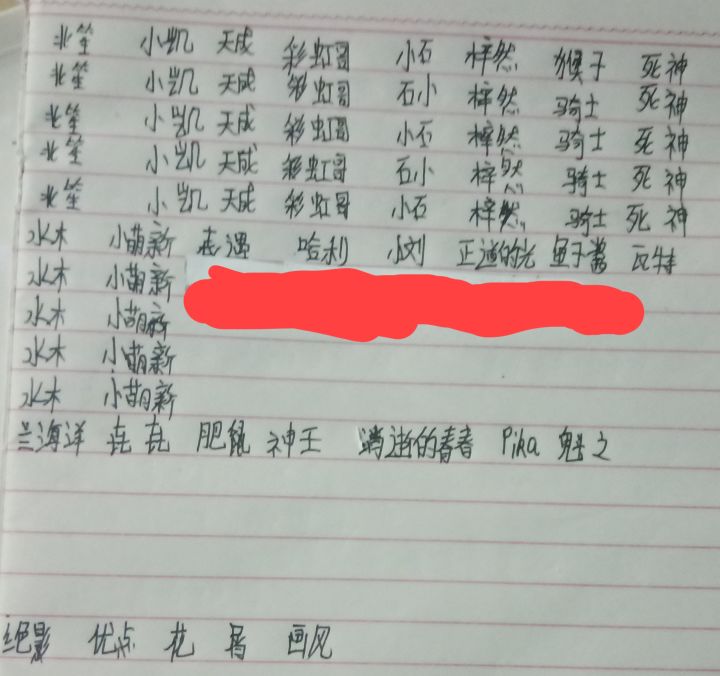 北笙 小凯 天成 彩虹哥 小石 梓然 猴子 死神
北笙 小凯 天成 彩虹哥 石小 梓然 骑士 死神
北笙 小凯 天成 彩虹哥 小石 梓然 骑士 死神
北笙 小凯 天成 彩虹哥 石小 梓然 骑士 死神
北笙 小凯 天成 彩虹哥 小石 梓然 骑士 死神
水木 小萌新 哈利 小刘 正道的光 鱼子酱 瓦特
水木 小萌新
水木 小萌新
水木 小萌新
水木 小萌新
兰海洋 垚垚 肥鼠 神王 消逝的青春 Pika 魁之
绝影 优点 花 画风